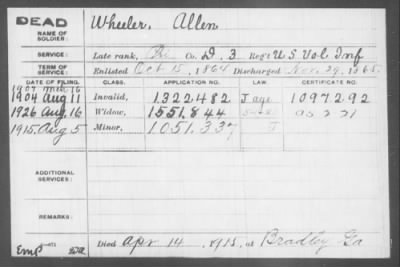 DEAD
Wheeler, Allen
NAME OF SOLDIER:
SERVICE:
Late rank, Co. D, 3 Reg't U S Vol Inf
TERM OF SERVICE:
Enlisted Oct 15, 1864 Discharged Nov. 29, 1865.
DATE OF FILING. CLASS. APPLICATION NO. LAW. CERTIFICATE NO.
1904 Aug 11 Invalid, 1322482 1097292
1926 Aug. 16 Widow, 1551844
1915 Aug 5 Minor, 1051337
ADDITIONAL SERVICES:
REMARKS:
Died Apr 14, 1915, at Bradley Ga